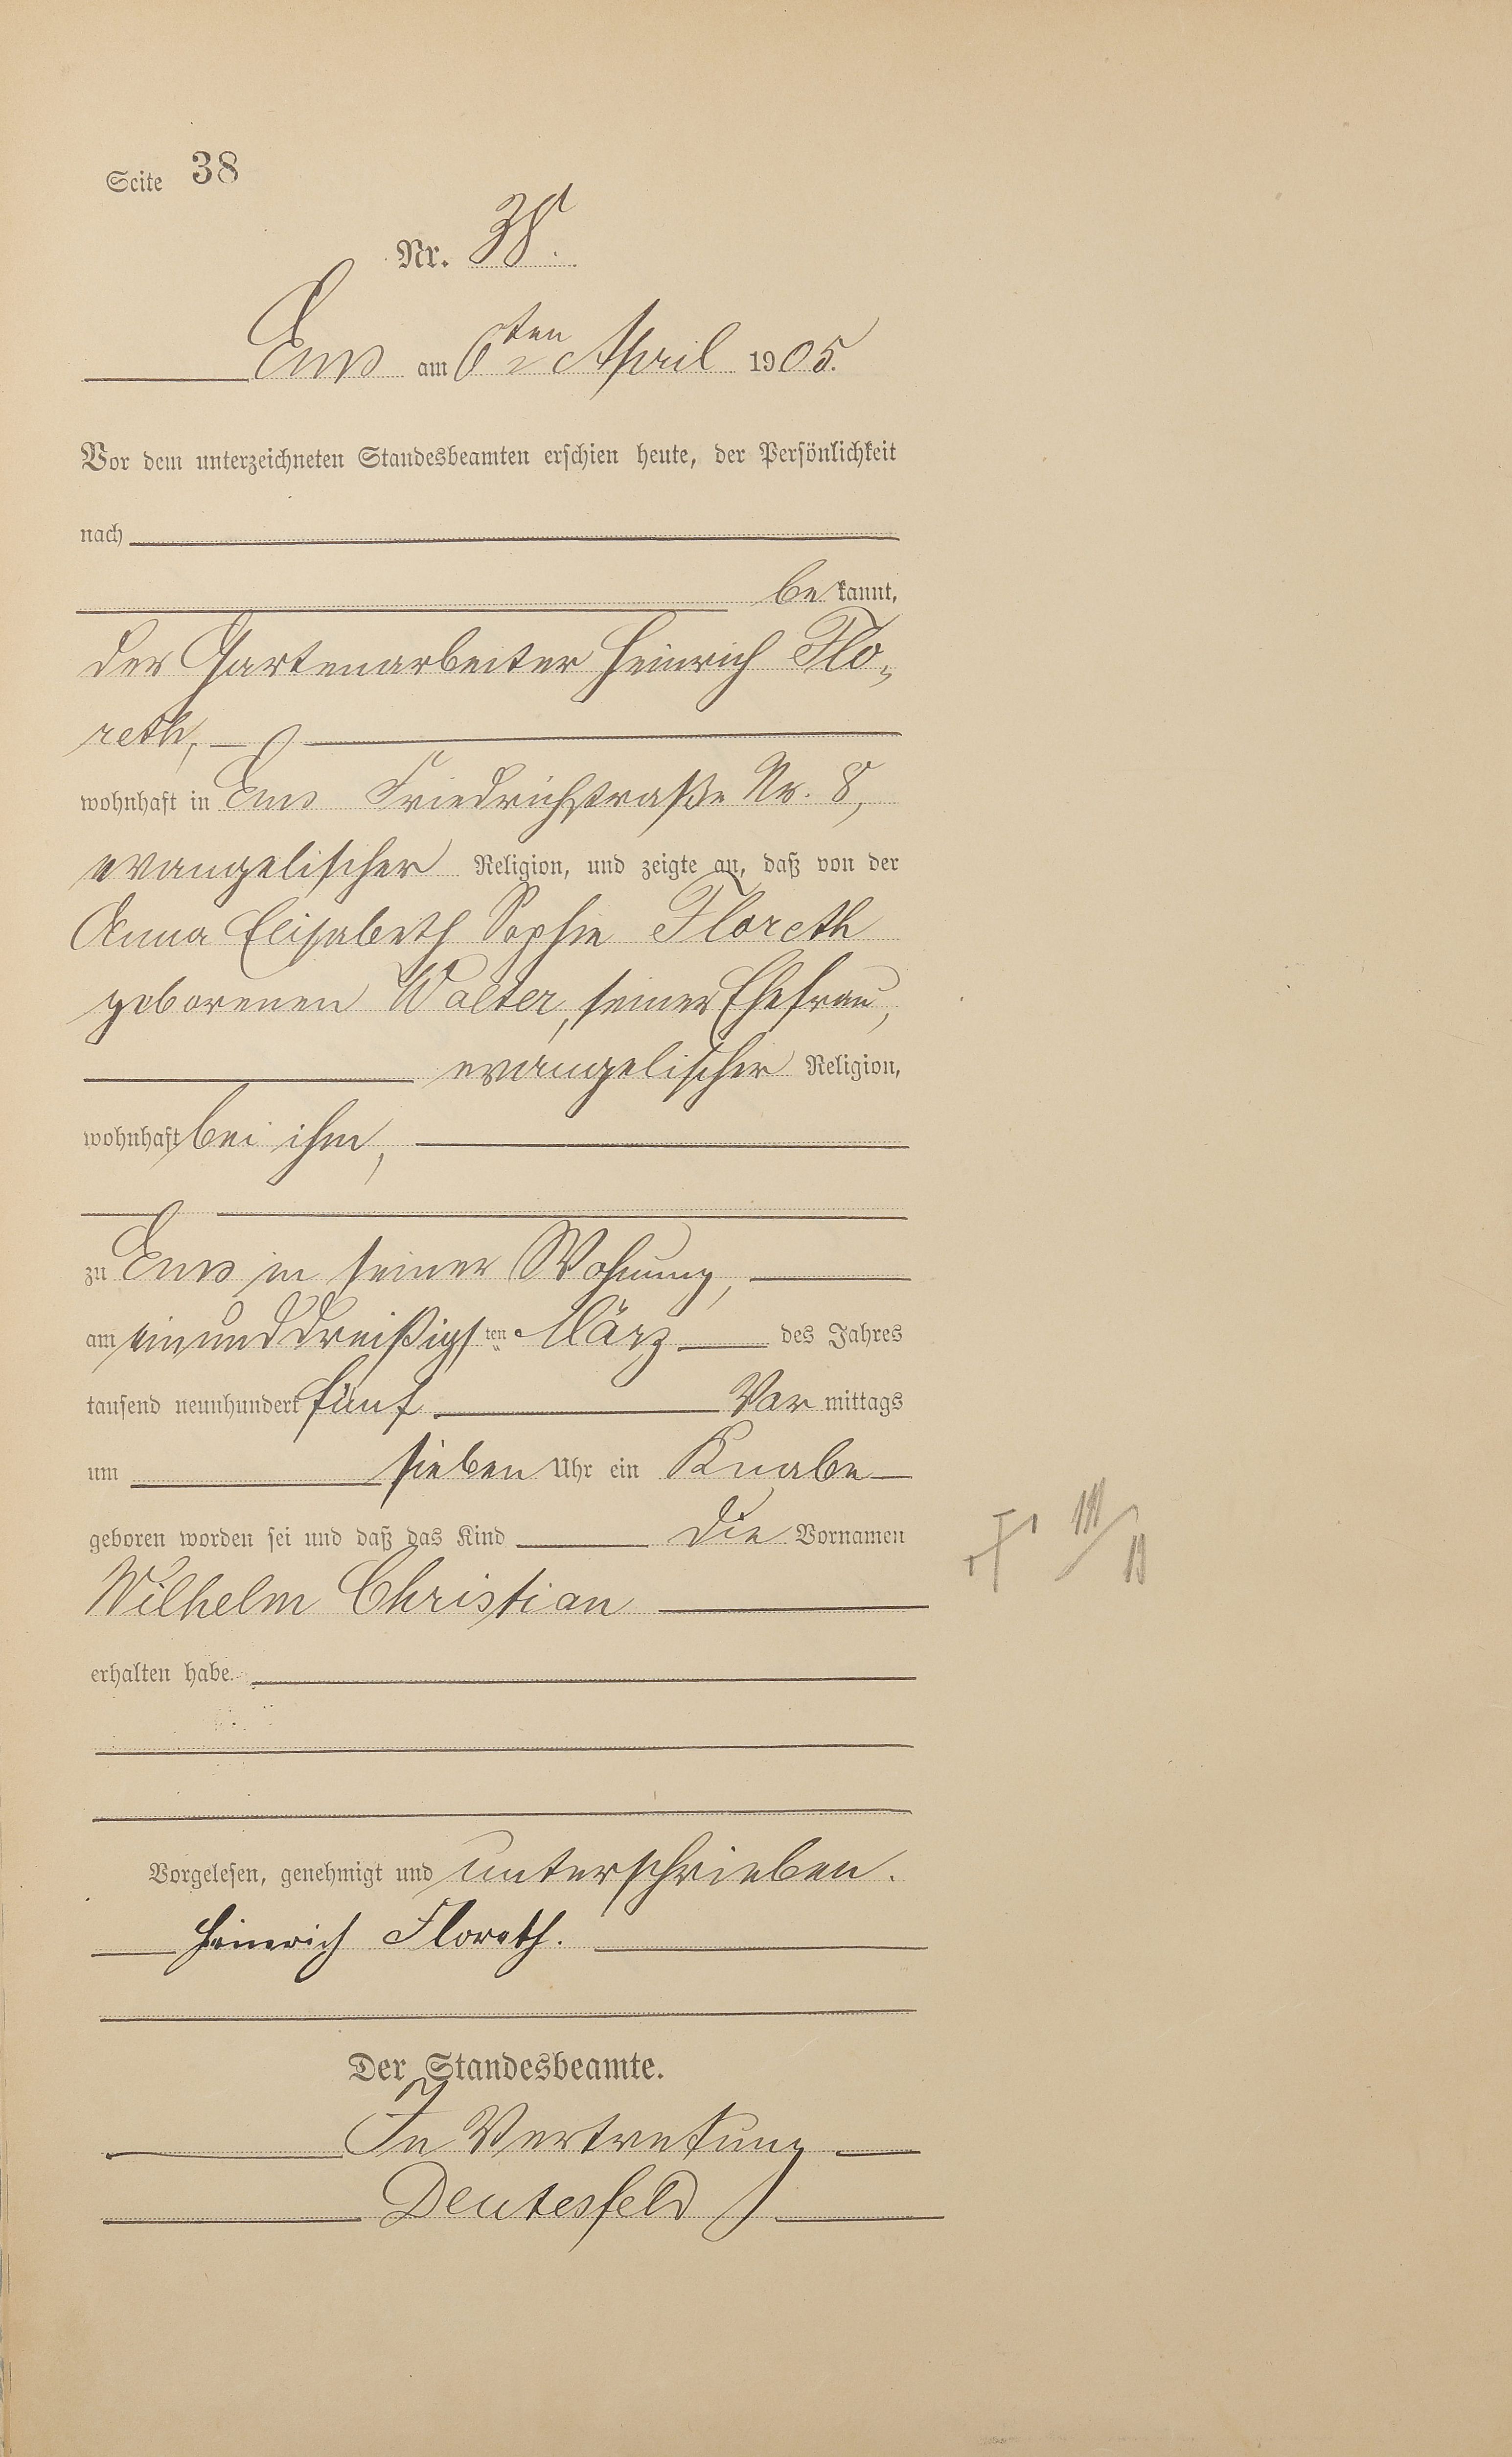 Seite 38
Nr. 38.
Ems am 6ten April 1905.
Vor dem unterzeichneten Standesbeamten erschien heute, der Persönlichkeit
nach
bekannt,
der Gartenarbeiter Heinrich Flo-
reth,
wohnhaft in Ems Friedrichstraße Nr. 8,
evangelischer Religion, und zeigte an, daß von der
Anna Elisabeth Sophie Floreth
geborenen Walter, seiner Ehefrau,
evangelischer Religion,
wohnhaft bei ihm,
zu Ems in seiner Wohnung,
am einunddreißigsten März des Jahres
tausend neunhundert fünf Vormittags
um sieben Uhr ein Knabe
geboren worden sei und daß das Kind die Vornamen
Wilhelm Christian
erhalten habe.
Vorgelesen, genehmigt und unterschrieben.
Heinrich Floreth.
Der Standesbeamte.
In Vertretung
Deutesfeld